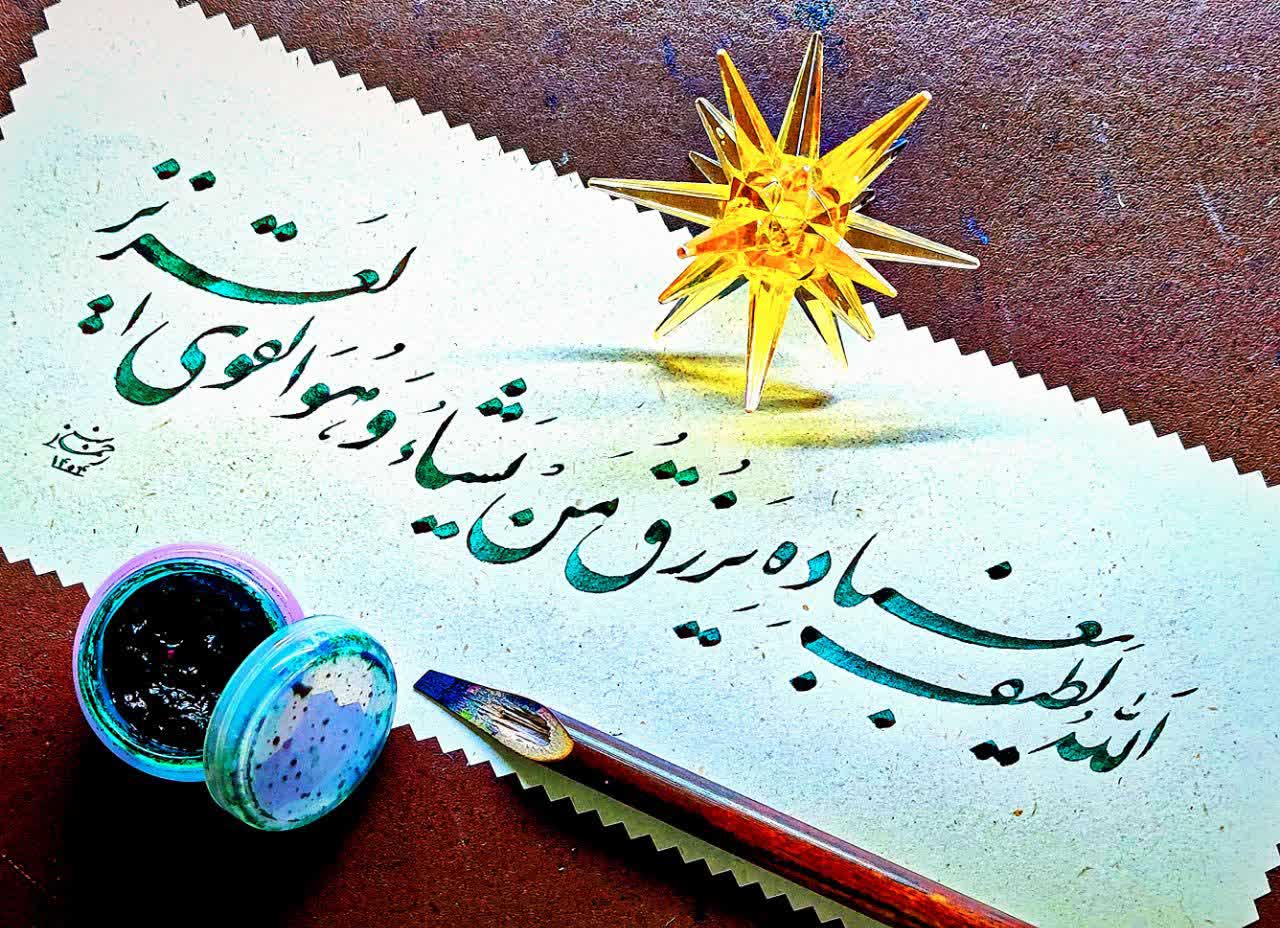 اَللّهُ لَطیفٌ بِعِبادِهِ یَرزُقُ مَنْ یَشاءُ وَ هُوَ القوی العَزیز
۱۴۰۴